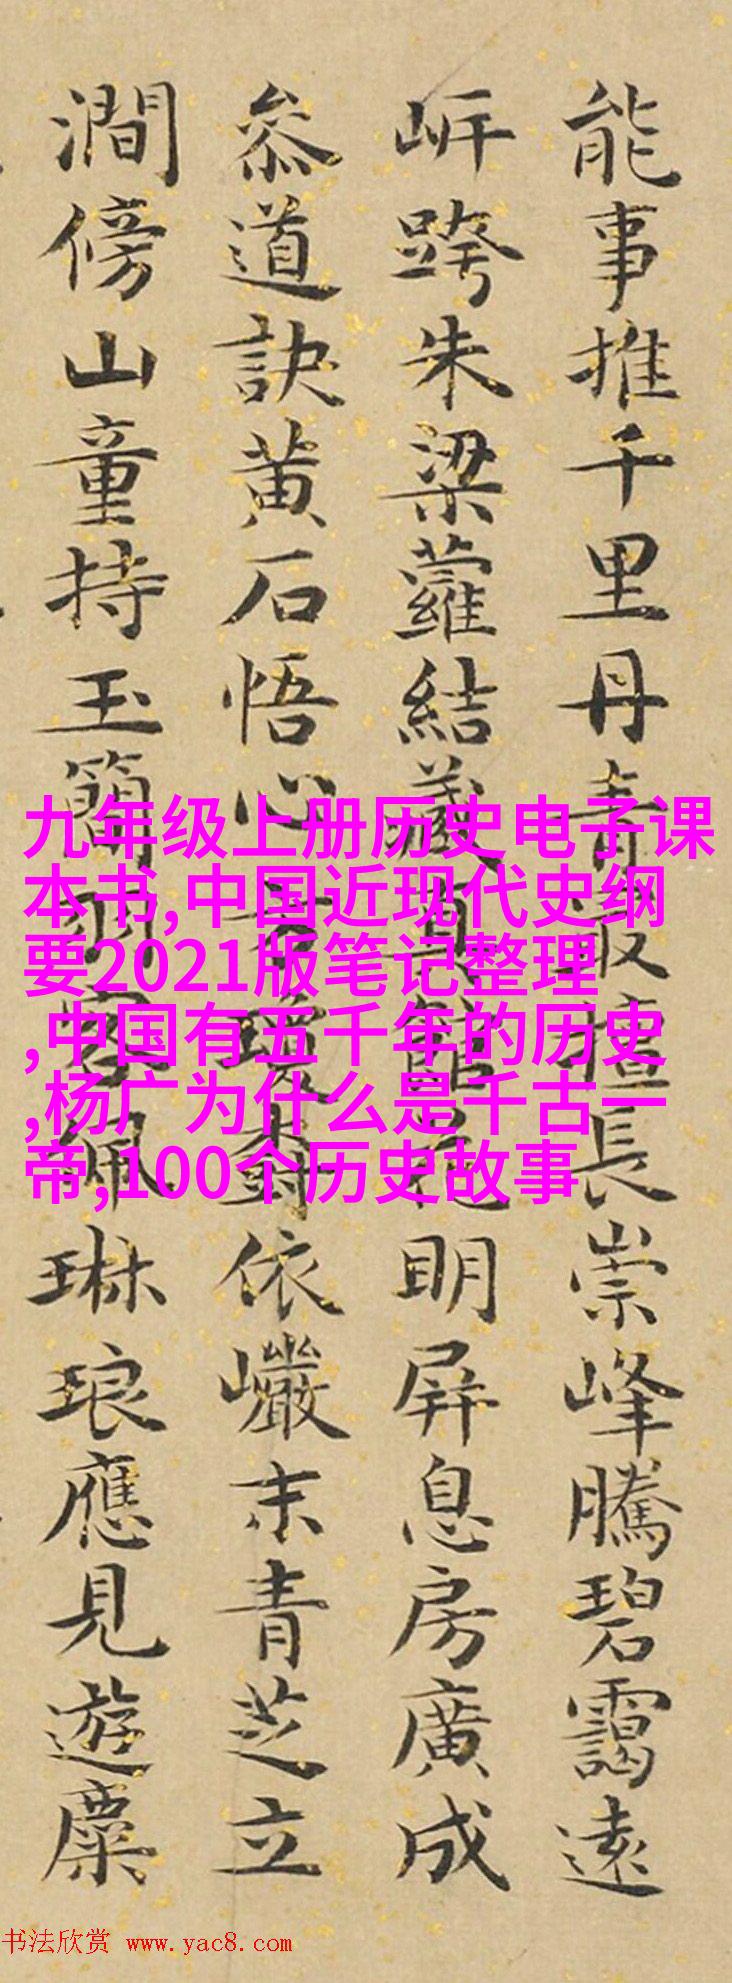 能事推千里丹青最擅長崇峰騰碧靄遠
岍跨朱梁蘿結藏真館花明屏息房廣成
叅道訣黄石悟心方瓊樹依巖末青芝立
澗傍山童持玉簡詞客佩琳琅應見遊麋
九年级上册历史电子课
本书,中国近现代史纲
要2021版笔记整理
,中国有五千年的历史
,杨广为什么是千古一
帝,100个历史故事
书法欣赏 www.yac8.com